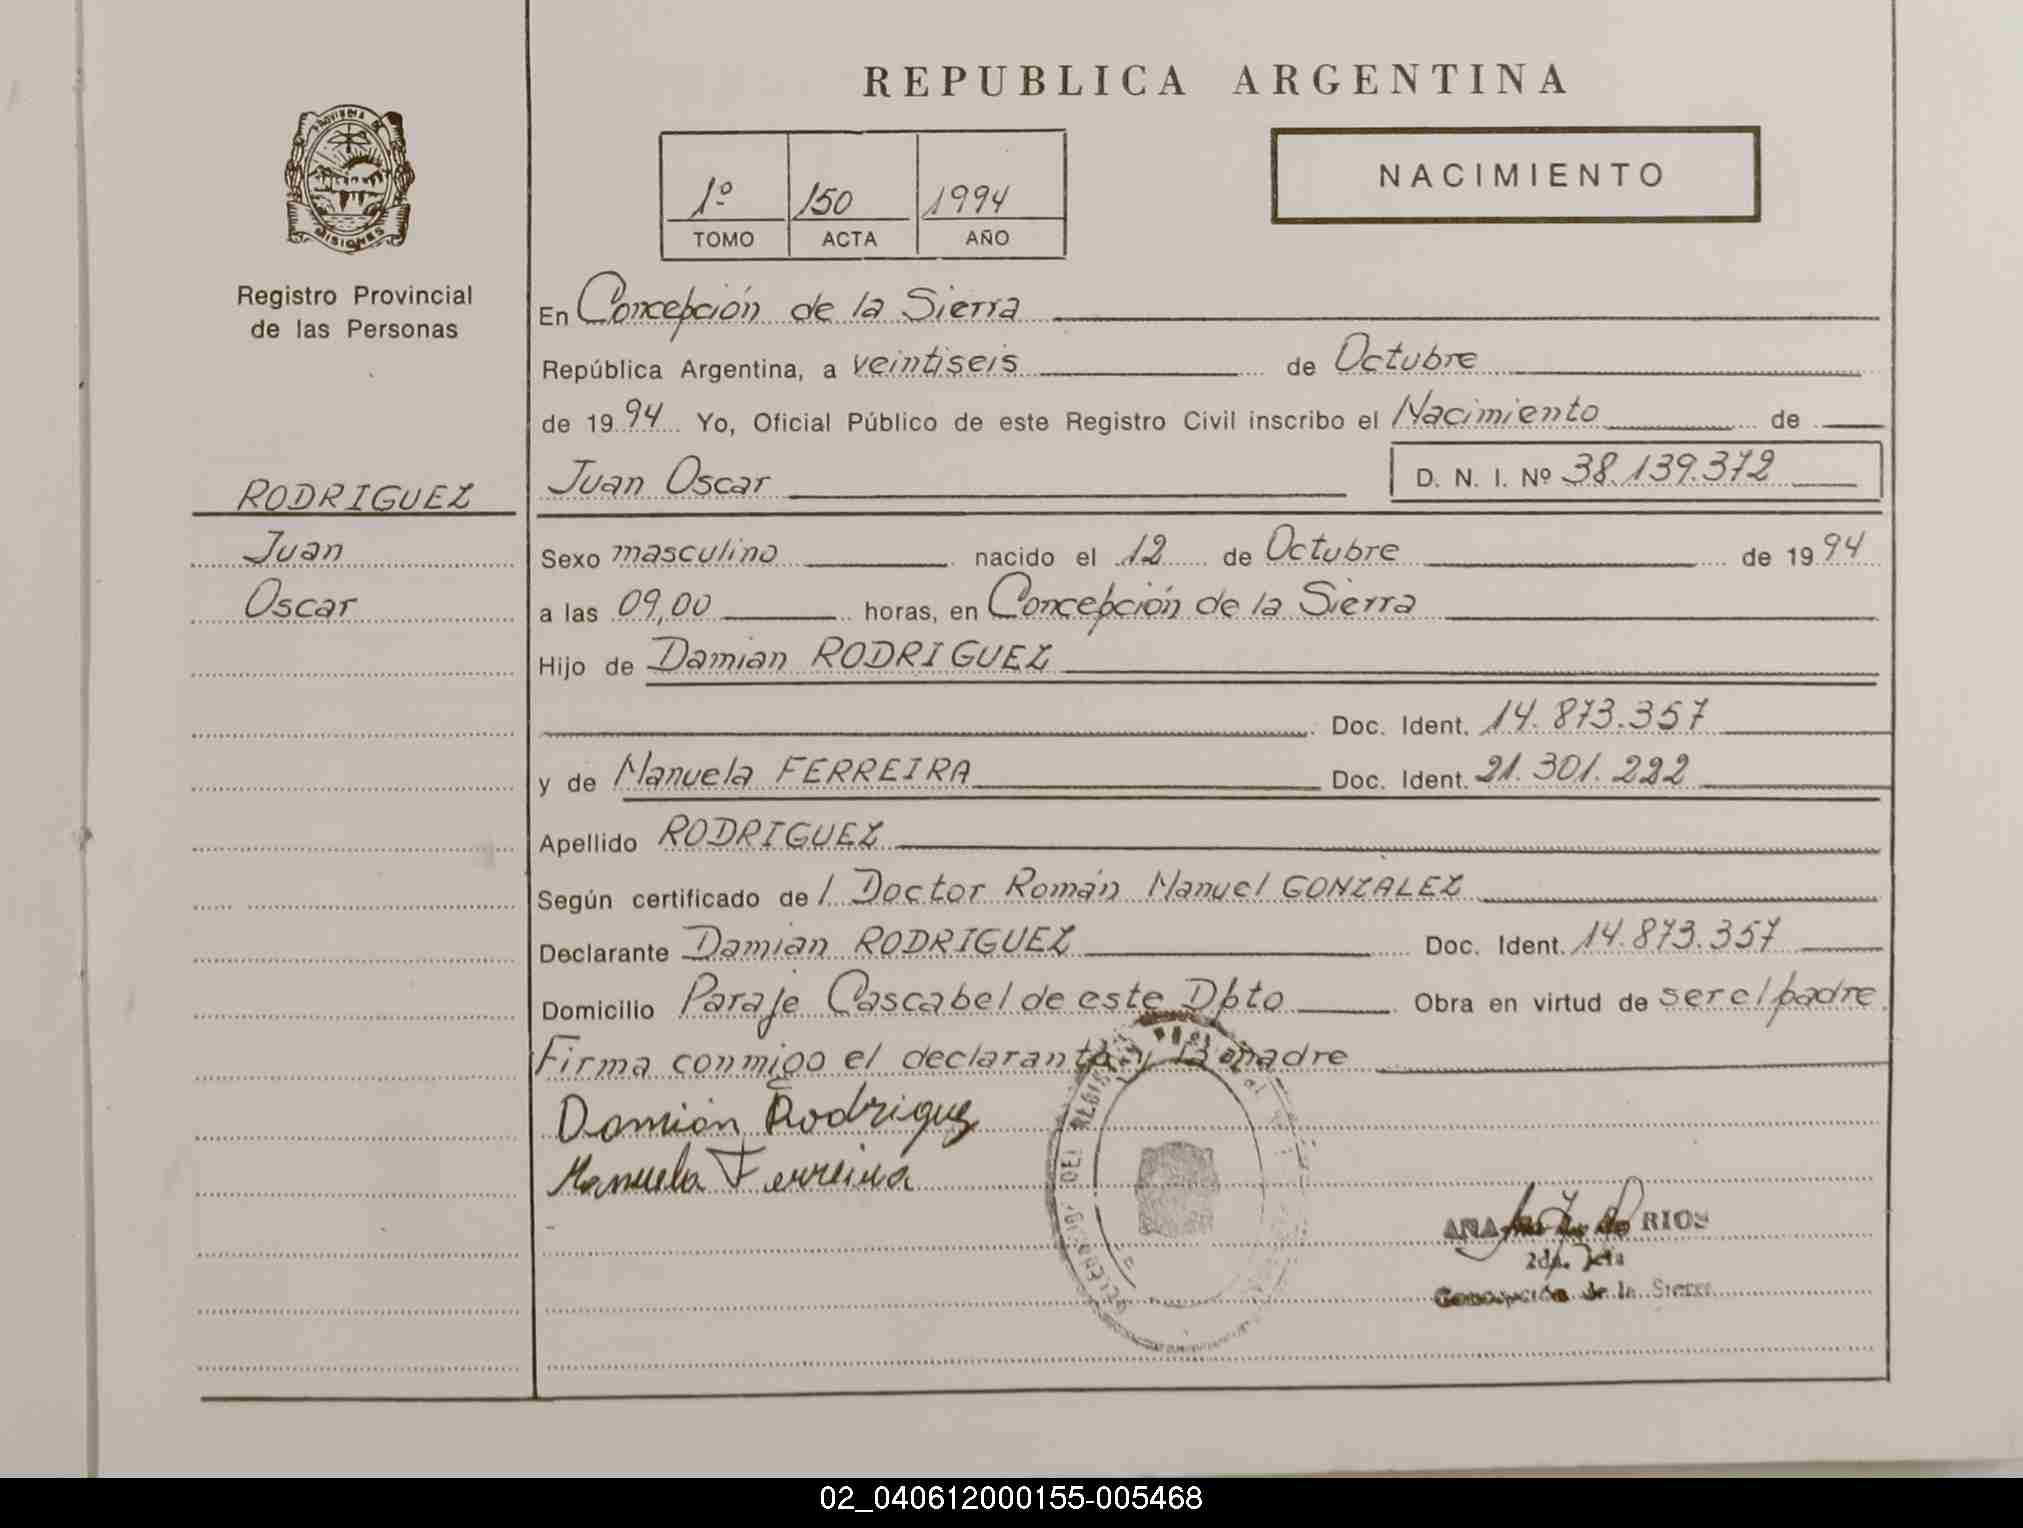 REPUBLICA ARGENTINA
PROVINCIA DE
MISIONES
Registro Provincial
de las Personas
1º 150 1994
TOMO ACTA AÑO
NACIMIENTO
En Concepción de la Sierra
República Argentina, a veintiseis de Octubre
de 1994 Yo, Oficial Público de este Registro Civil inscribo el Nacimiento de
RODRIGUEZ
Juan
Oscar
Juan Oscar D. N. I. Nº 38.139.372
Sexo masculino nacido el 12 de Octubre de 1994
a las 09,00 horas, en Concepción de la Sierra
Hijo de Damian RODRIGUEZ
Doc. Ident. 14.873.357
y de Manuela FERREIRA Doc. Ident. 21.301.222
Apellido RODRIGUEZ
Según certificado de l Doctor Román Manuel GONZALEZ
Declarante Damian RODRIGUEZ Doc. Ident. 14.873.357
Domicilio Paraje Cascabel de este Dpto Obra en virtud de ser el padre
Firma conmigo el declarante y la madre
Damián Rodriguez
Manuela Ferreira
DEL REGISTRO
ANA RIOS
2da.
Concepción de la Sierra
02_040612000155-005468